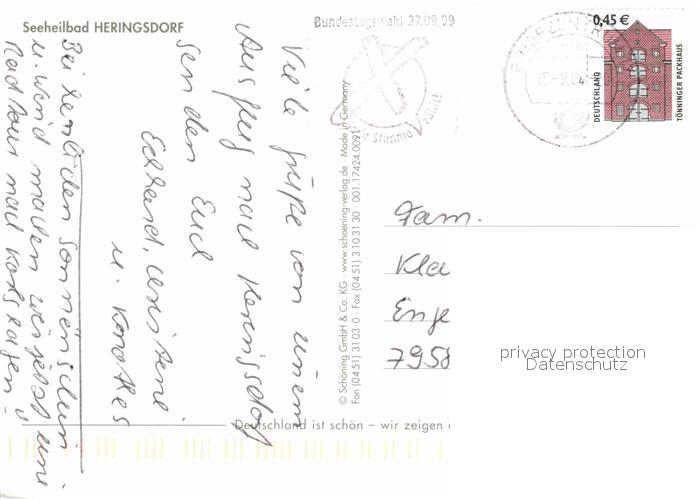 Seeheilbad HERINGSDORF
Bundestagswahl 27.09.09
Stimme zählt!
BRIEFZENTRUM
0,45 €
DEUTSCHLAND
TÖNNINGER PACKHAUS
Viele Grüße von einem
Ausflug nach Heringsdorf
senden Euch
Eckhard, Christene
u. Korothes
Bei herrlichem Sonnenschein
u. Wind machen wir jetzt eine
Radtour nach
© Schöning GmbH & Co. KG · www.schoening-verlag.de · Made in Germany
Fon (04 51) 31 03-0 · Fax (04 51) 3 10 31 30 · 001.17424.0091
Fam.
Kla
Enge
7958
privacy protection
Datenschutz
Deutschland ist schön – wir zeigen